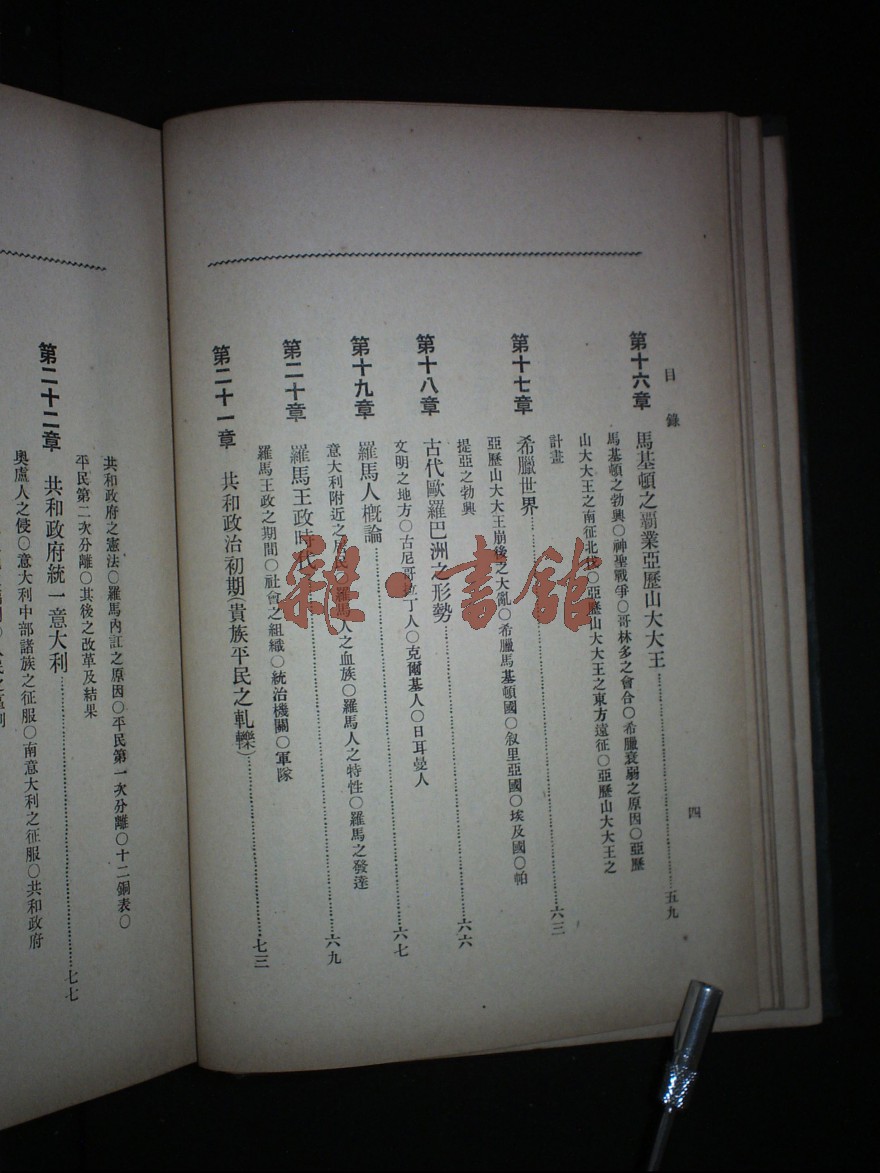 目錄
四
第十六章 馬基頓之霸業亞歷山大大王……五九
馬基頓之勃興○神聖戰爭○哥林多之會合○希臘衰弱之原因○亞歷
山大大王之南征北伐○亞歷山大大王之東方遠征○亞歷山大大王之
計畫
第十七章 希臘世界……六三
亞歷山大大王崩後之大亂○希臘馬基頓國○叙里亞國○埃及國○帕
提亞之勃興
第十八章 古代歐羅巴洲之形勢……六六
文明之地方○古尼哥拉丁人○克爾基人○日耳曼人
第十九章 羅馬人概論……六七
意大利附近之居民○羅馬人之血族○羅馬人之特性○羅馬之發達
第二十章 羅馬王政時代……六九
羅馬王政之期間○社會之組織○統治機關○軍隊
第二十一章 共和政治初期(貴族平民之軋轢)……七三
共和政府之憲法○羅馬內訌之原因○平民第一次分離○十二銅表○
平民第二次分離○其後之改革及結果
第二十二章 共和政府統一意大利……七七
奧盧人之侵○意大利中部諸族之征服○南意大利之征服○共和政府
雜·書館